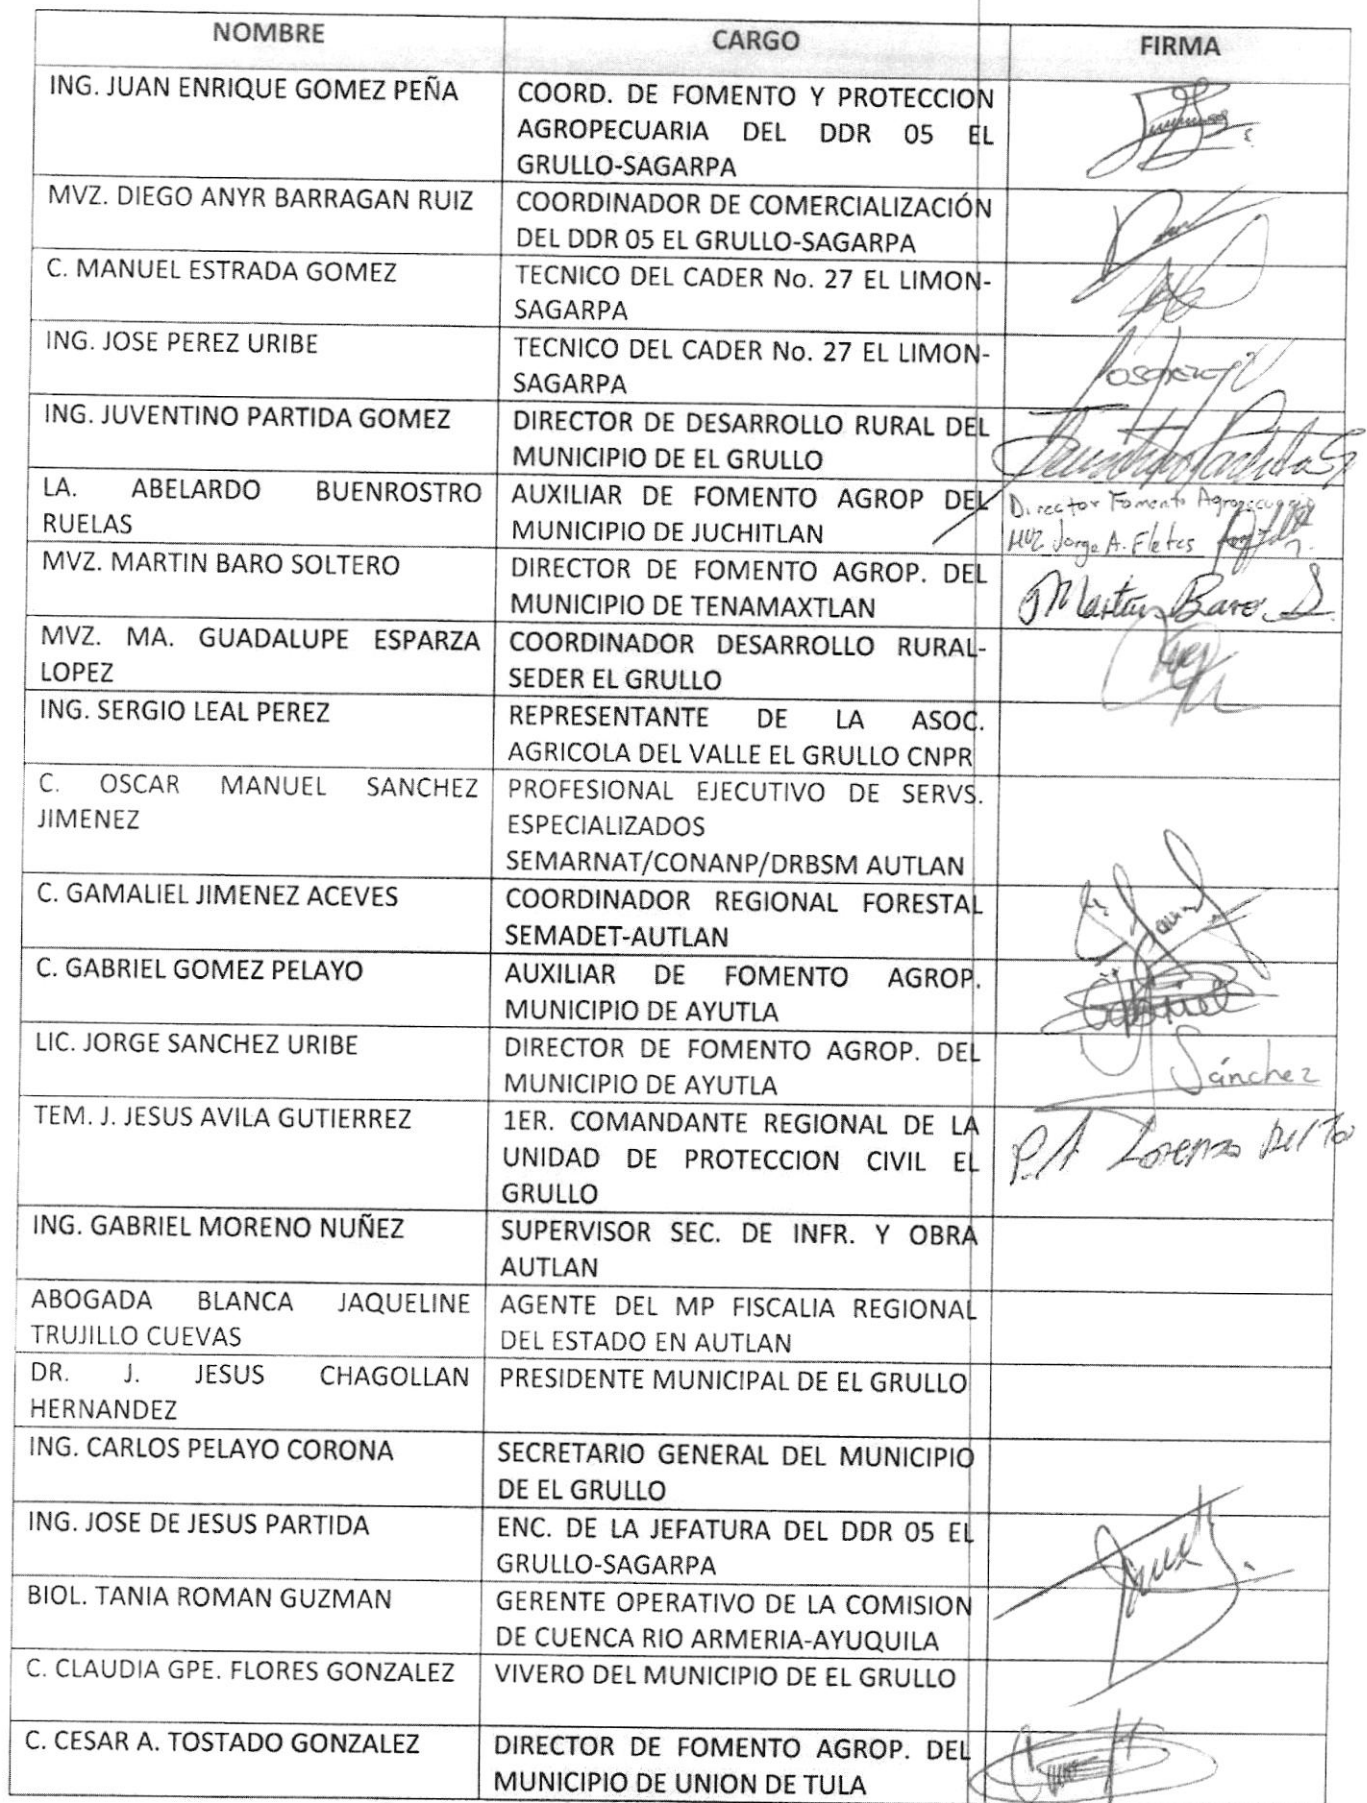 NOMBRE CARGO FIRMA
ING. JUAN ENRIQUE GOMEZ PEÑA COORD. DE FOMENTO Y PROTECCION
AGROPECUARIA DEL DDR 05 EL
GRULLO-SAGARPA
MVZ. DIEGO ANYR BARRAGAN RUIZ COORDINADOR DE COMERCIALIZACIÓN
DEL DDR 05 EL GRULLO-SAGARPA
C. MANUEL ESTRADA GOMEZ TECNICO DEL CADER No. 27 EL LIMON-
SAGARPA
ING. JOSE PEREZ URIBE TECNICO DEL CADER No. 27 EL LIMON-
SAGARPA
ING. JUVENTINO PARTIDA GOMEZ DIRECTOR DE DESARROLLO RURAL DEL
MUNICIPIO DE EL GRULLO
LA. ABELARDO BUENROSTRO AUXILIAR DE FOMENTO AGROP DEL Director Fomento Agropecuario
RUELAS MUNICIPIO DE JUCHITLAN MVZ Jorge A. Fletes
MVZ. MARTIN BARO SOLTERO DIRECTOR DE FOMENTO AGROP. DEL
MUNICIPIO DE TENAMAXTLAN Martin Baro S.
MVZ. MA. GUADALUPE ESPARZA COORDINADOR DESARROLLO RURAL-
LOPEZ SEDER EL GRULLO
ING. SERGIO LEAL PEREZ REPRESENTANTE DE LA ASOC.
AGRICOLA DEL VALLE EL GRULLO CNPR
C. OSCAR MANUEL SANCHEZ PROFESIONAL EJECUTIVO DE SERVS.
JIMENEZ ESPECIALIZADOS
SEMARNAT/CONANP/DRBSM AUTLAN
C. GAMALIEL JIMENEZ ACEVES COORDINADOR REGIONAL FORESTAL
SEMADET-AUTLAN
C. GABRIEL GOMEZ PELAYO AUXILIAR DE FOMENTO AGROP.
MUNICIPIO DE AYUTLA Gabriel
LIC. JORGE SANCHEZ URIBE DIRECTOR DE FOMENTO AGROP. DEL
MUNICIPIO DE AYUTLA Sánchez
TEM. J. JESUS AVILA GUTIERREZ 1ER. COMANDANTE REGIONAL DE LA
UNIDAD DE PROTECCION CIVIL EL P.A Lorenzo
GRULLO
ING. GABRIEL MORENO NUÑEZ SUPERVISOR SEC. DE INFR. Y OBRA
AUTLAN
ABOGADA BLANCA JAQUELINE AGENTE DEL MP FISCALIA REGIONAL
TRUJILLO CUEVAS DEL ESTADO EN AUTLAN
DR. J. JESUS CHAGOLLAN PRESIDENTE MUNICIPAL DE EL GRULLO
HERNANDEZ
ING. CARLOS PELAYO CORONA SECRETARIO GENERAL DEL MUNICIPIO
DE EL GRULLO
ING. JOSE DE JESUS PARTIDA ENC. DE LA JEFATURA DEL DDR 05 EL
GRULLO-SAGARPA
BIOL. TANIA ROMAN GUZMAN GERENTE OPERATIVO DE LA COMISION
DE CUENCA RIO ARMERIA-AYUQUILA
C. CLAUDIA GPE. FLORES GONZALEZ VIVERO DEL MUNICIPIO DE EL GRULLO
C. CESAR A. TOSTADO GONZALEZ DIRECTOR DE FOMENTO AGROP. DEL
MUNICIPIO DE UNION DE TULA